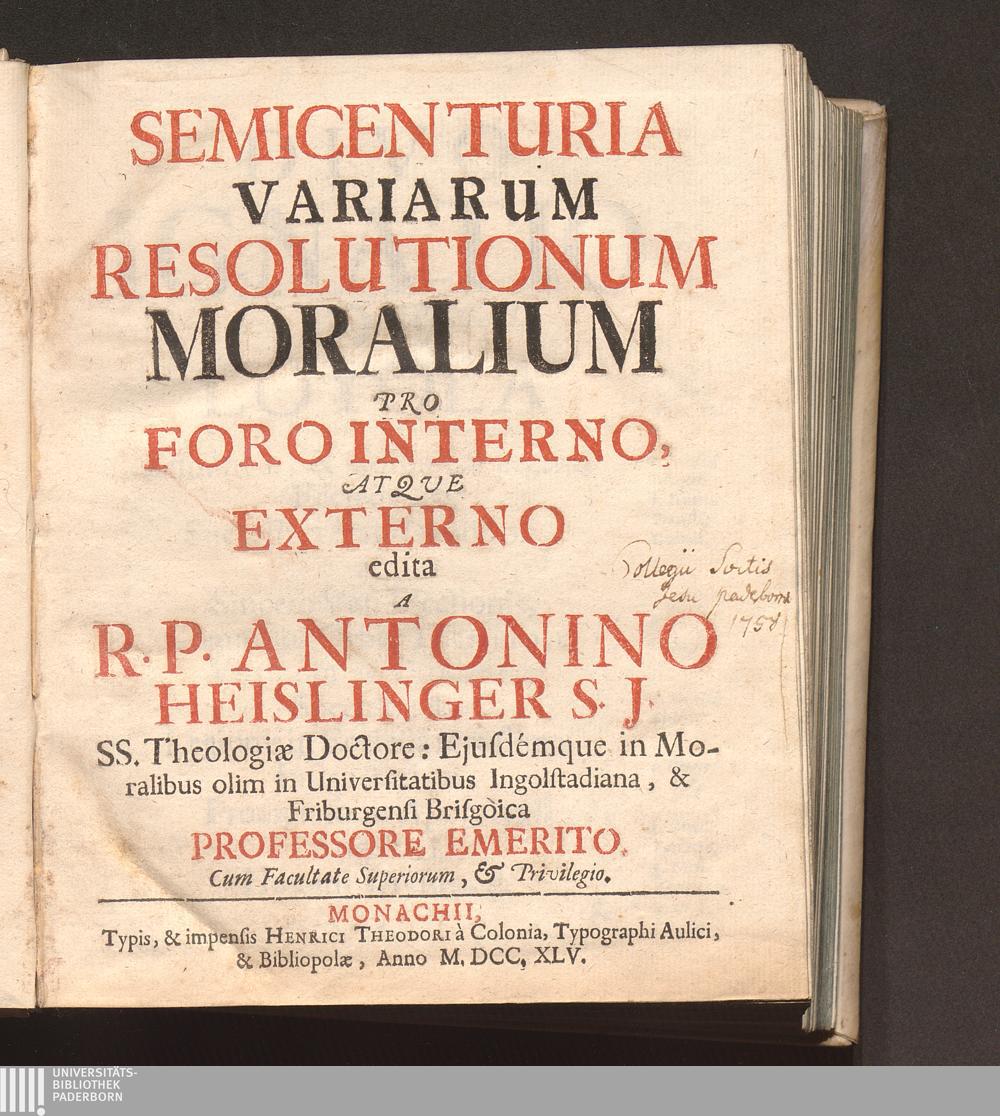 SEMICENTURIA
VARIARUM
RESOLUTIONUM
MORALIUM
PRO
FORO INTERNO,
ATQUE
EXTERNO
edita
A
R. P. ANTONINO
HEISLINGER S. J.
SS. Theologiæ Doctore: Ejuſdémque in Mo-
ralibus olim in Univerſitatibus Ingolſtadiana, &
Friburgenſi Briſgòica
PROFESSORE EMERITO.
Cum Facultate Superiorum, & Privilegio.
MONACHII,
Typis, & impenſis HENRICI THEODORI à Colonia, Typographi Aulici,
& Bibliopolæ, Anno M. DCC, XLV.
Collegii Soctis
Jesu paderborn
1758
UNIVERSITÄTS-
BIBLIOTHEK
PADERBORN